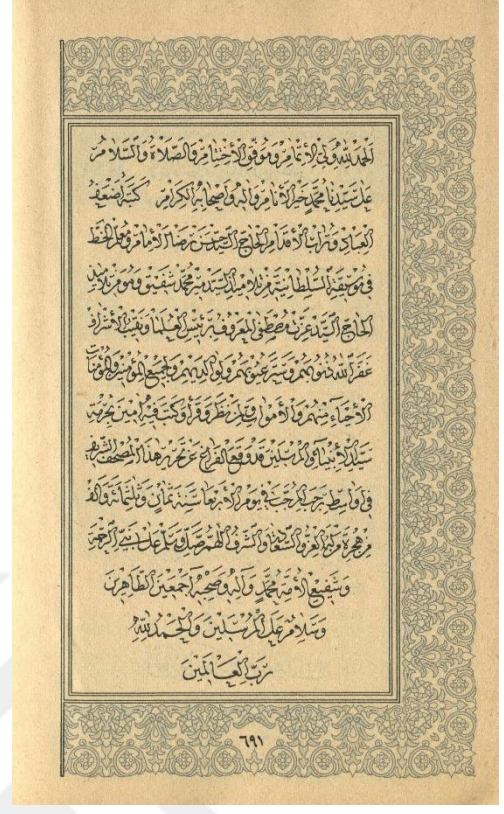 الحمد لله ولي الأتمام وموفق الأختتام والصلاة والسلام
على سيدنا محمد خير الأنام وآله وأصحابه الكرام كتبه أضعف
العباد وتراب الأقدام الحاج السيد حسن رضا الأمام ومعلم الخط
في موسيقة السلطانية من تلاميذ السيد محمد شفيق وهو من تلاميذ
الحاج السيد عزت مصطفى المعروف برئيس العلماء ونقيب الأشراف
غفر الله ذنوبهم وستر عيوبهم ولوالديهم ولجميع المؤمنين والمؤمنات
الأحياء منهم والأموات ولمن نظر وقرأ وكتب فيه أمين بحرمة
سيد الأنبياء والمرسلين قد وقع الفراغ عن تحرير هذا المصحف الشريف
في أواسط رجب المرجب في يوم الأربعا سنة ثمان وثلثمائة وألف
من هجرة من له العز والسعادة والشرف اللهم صل وسلم على نبي الرحمة
وشفيع الأمة محمد وآله وصحبه أجمعين الطاهرين
وسلام على المرسلين والحمد لله
رب العالمين
٦٩١